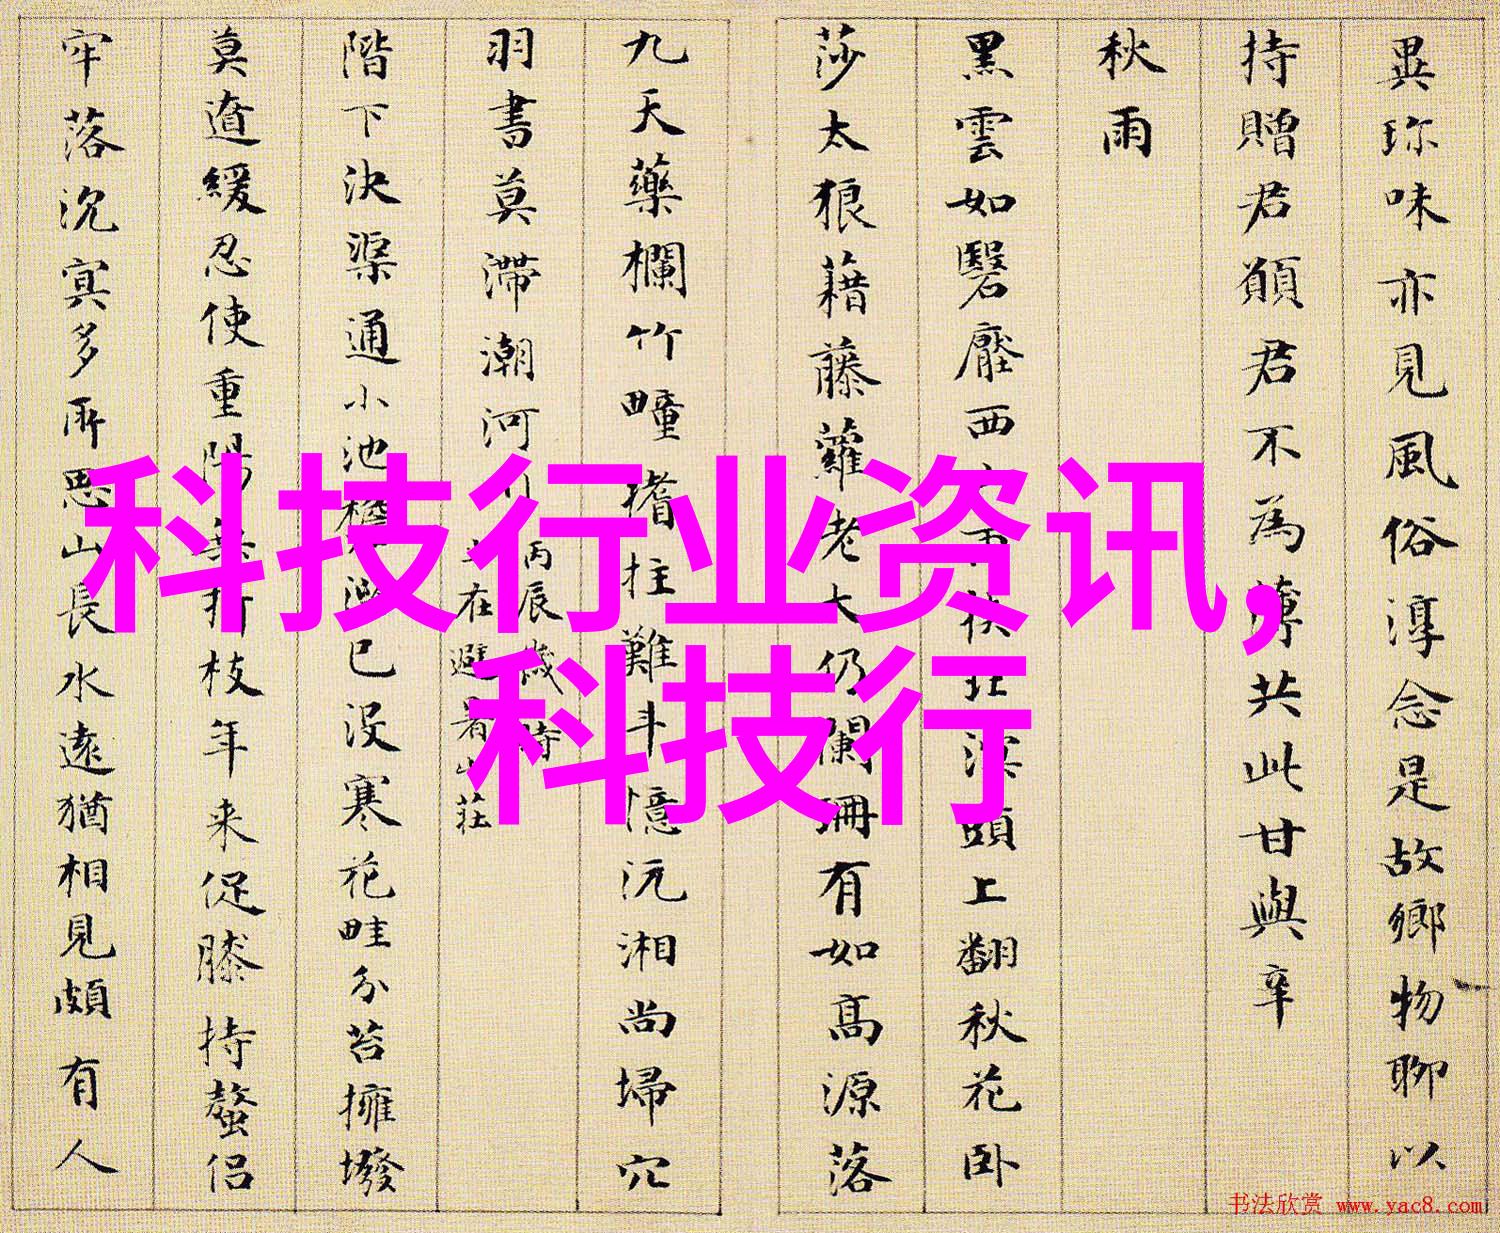 異珎味亦見風俗淳念是故鄉物聊以
持贈君願君不為薄共此甘與辛
秋雨
黑雲如翳壓西
頭上翻秋花卧
莎太狼藉藤蘿老大仍闌珊有如高源落
九天藥欄竹疃
拄難斗憶沅湘尚埽穴
羽書莫滯潮河
丙辰歲時
在避暑山莊
階下決渠通小池
已没寒花畦分苔擁撥
莫遒緩忍使重陽
折枝年来促膝持螯侣
牢落沉冥多所思山長水遠猶相見頗有人
科技行业资讯,
科技行
书法欣赏 www.yac8.com